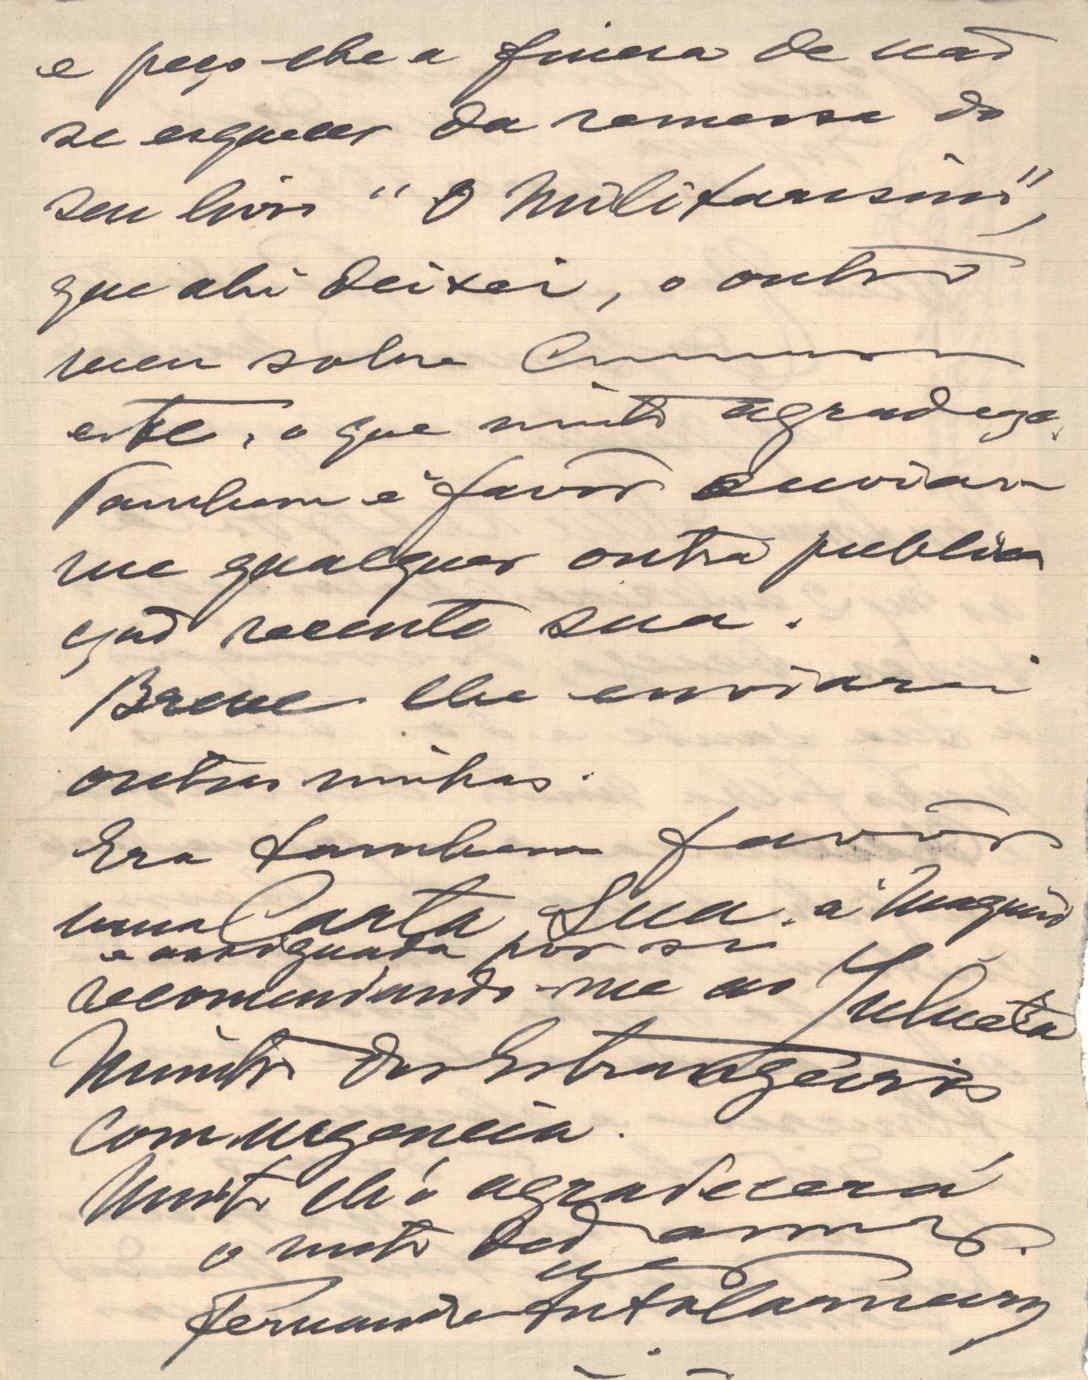 e peço-lhe a fineza de não
se esquecer da remessa do
seu livro "O Militarismo",
que ahi deixei, e outro
meu sobre
este, o que muito agradeço.
Tambem é favor enviar-
me qualquer outra publica
ção recente sua.
Breve lhe enviarei
outras minhas.
Era tambem favor
uma Carta Sua, á maquina
e assignada por si
recomendando-me ao
Ministro dos Estrangeiros
com urgencia.
Muito lh'o agradecerá
o muito ded
Fernando